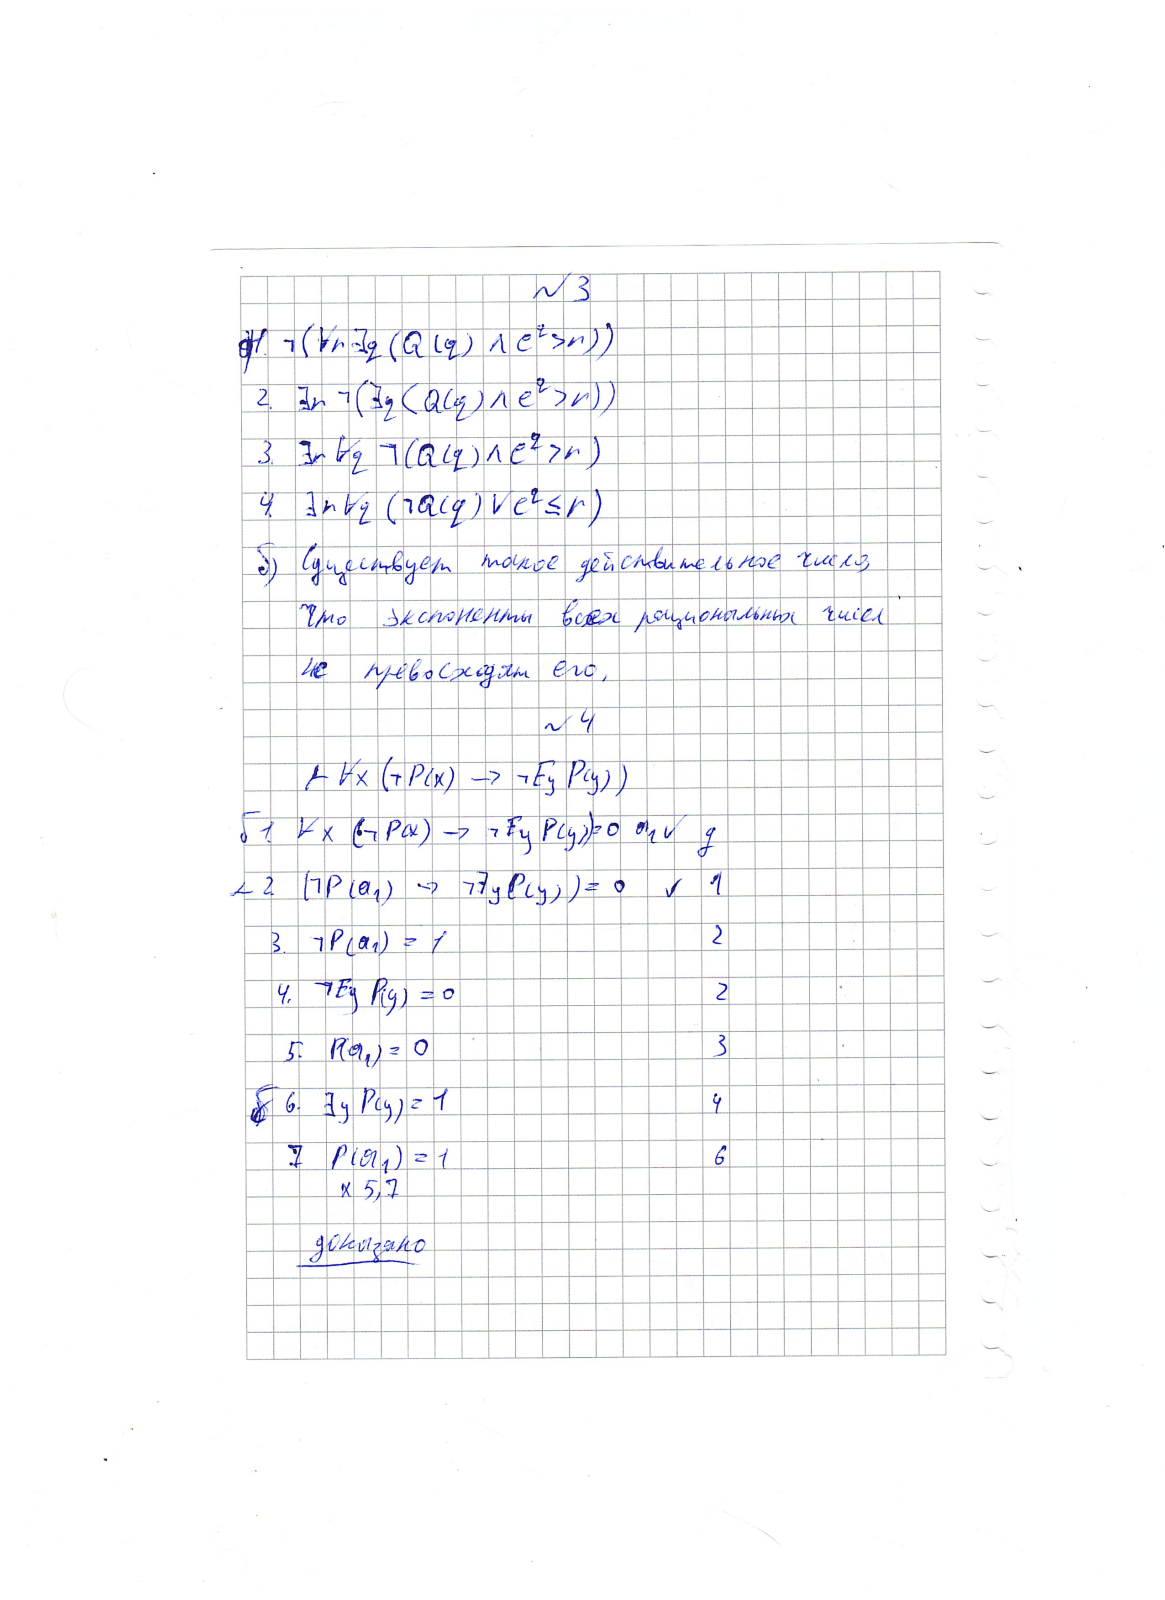 № 3
1. ¬(∀r ∃q (Q(q) ∧ e^q > r))
2. ∃r ¬(∃q (Q(q) ∧ e^q > r))
3. ∃r ∀q ¬(Q(q) ∧ e^q > r)
4. ∃r ∀q (¬Q(q) ∨ e^q ≤ r)
б) Существует такое действительное число,
что экспоненты всех рациональных чисел
не превосходят его.
№ 4
⊢ ∀x (¬P(x) → ¬Ey P(y))
б 1. ∀x (¬P(x) → ¬Ey P(y)) = 0 a₁ ✓ g
2. (¬P(a₁) → ¬∃y P(y)) = 0 ✓ 1
3. ¬P(a₁) = 1 2
4. ¬Ey P(y) = 0 2
5. P(a₁) = 0 3
б 6. ∃y P(y) = 1 4
7 P(a₁) = 1 6
× 5,7
доказано